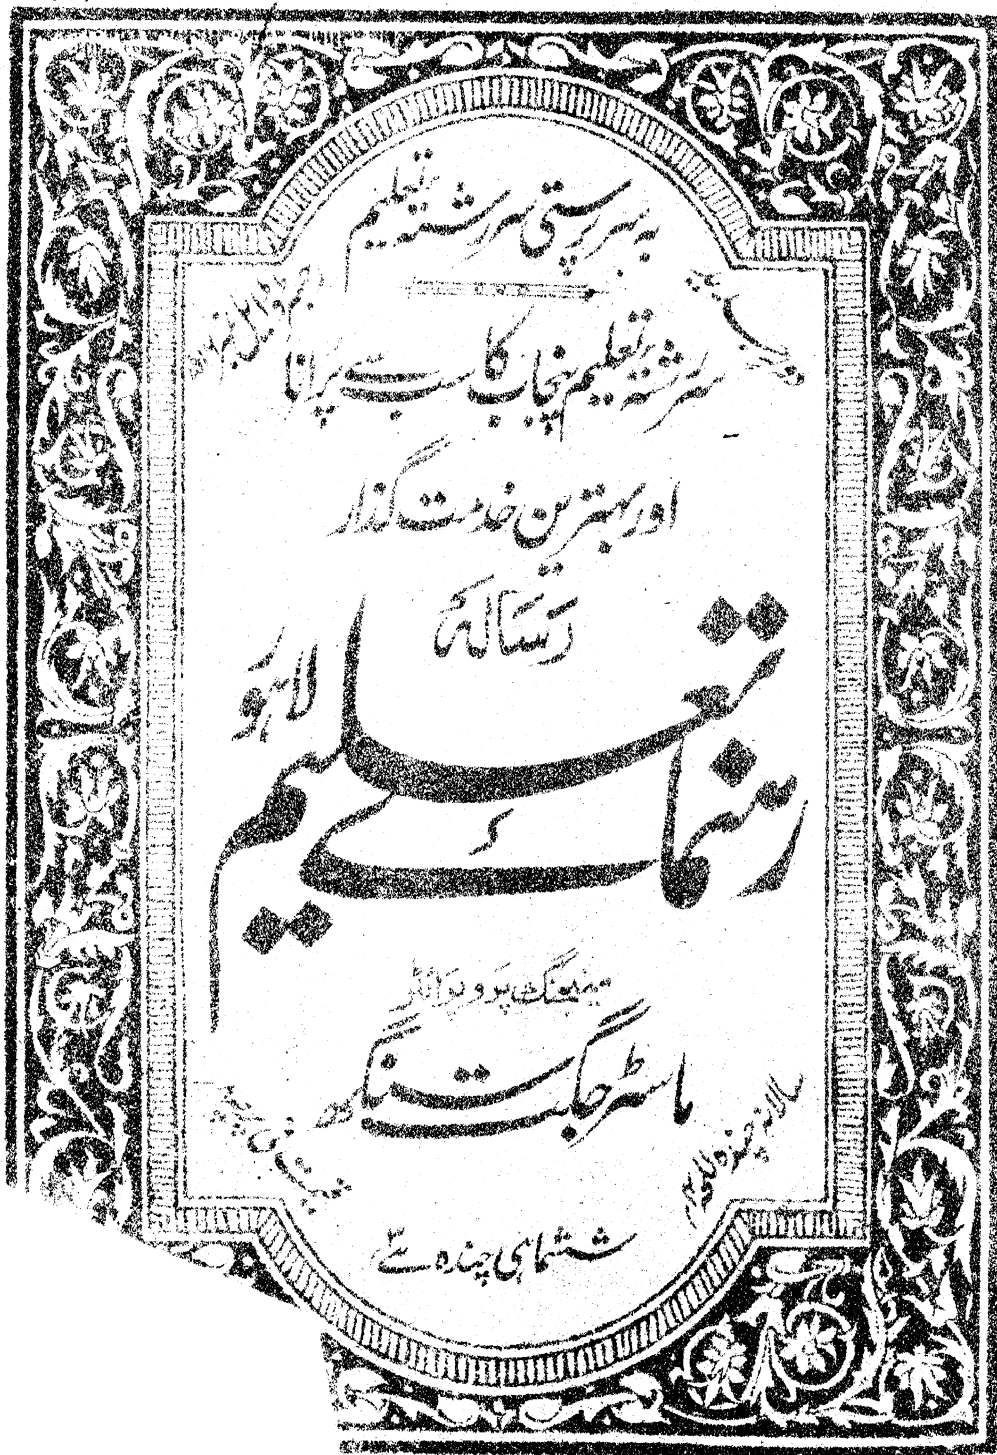 بہ سرپرستی سررشتہ تعلیم
رجسٹرڈ ایل نمبر
سررشتہ تعلیم پنجاب کا سب سے پرانا
اور بہترین خدمت گذار
رسالہ
رہنمائے تعلیم
لاہور
مینیجنگ پروپرائٹر
ماسٹر جگت سنگھ
سالانہ چندہ
قیمت فی پرچہ
ششماہی چندہ